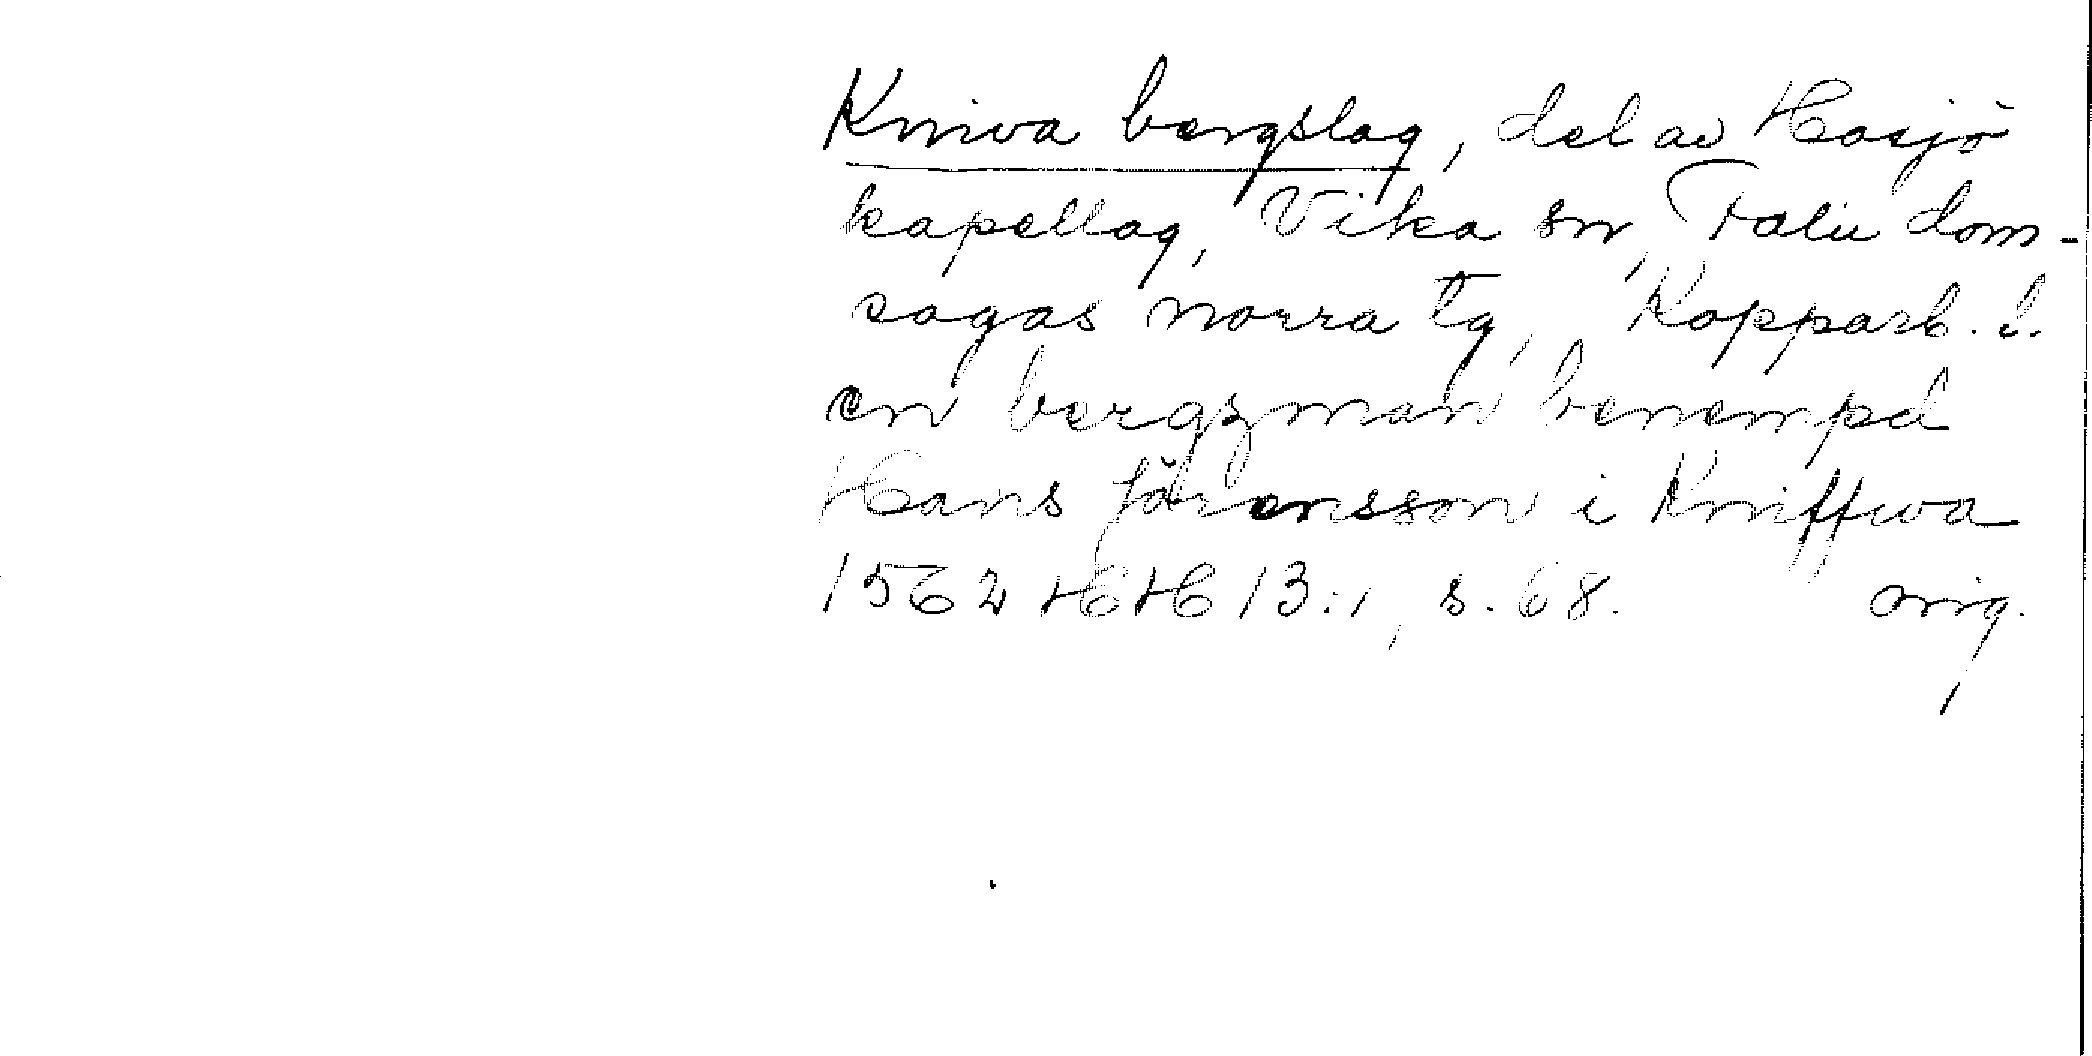 Kniva bergslag, del av Hosjö
kapellag, Vika sn, Falu dom-
sagas norra tg, Kopparb. l.
en bergzman benempd
Hans Jörensson i Kniffwa
1562 HH 13:1, s. 68. orig.